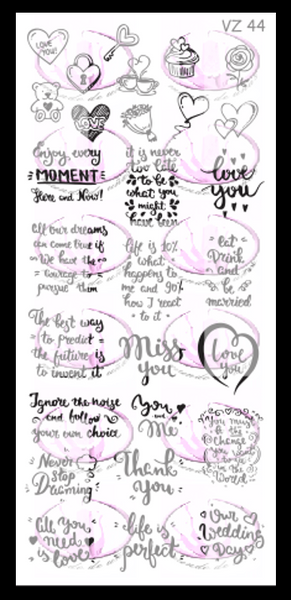 VZ 44
LOVE YOU!
LOVE
Enjoy every
MOMENT
Here and Now!
it is never
too late
to be
what you
might
have been
love
you
All our dreams
can come true if
We have the
courage to
pursue them
life is 10%
what
happens to
me and 90%
how I react
to it
eat
Drink
and
be
married!
The best way
to predict
the future is
to invent it
Miss
you
love
you
Ignore the noise
and follow
your own choice
You
and
Me
You must
be the
Change
you
in the
World
Never
Stop
Dreaming
Thank
you
All You
need
is love
life is
perfect
Our
Wedding
Day